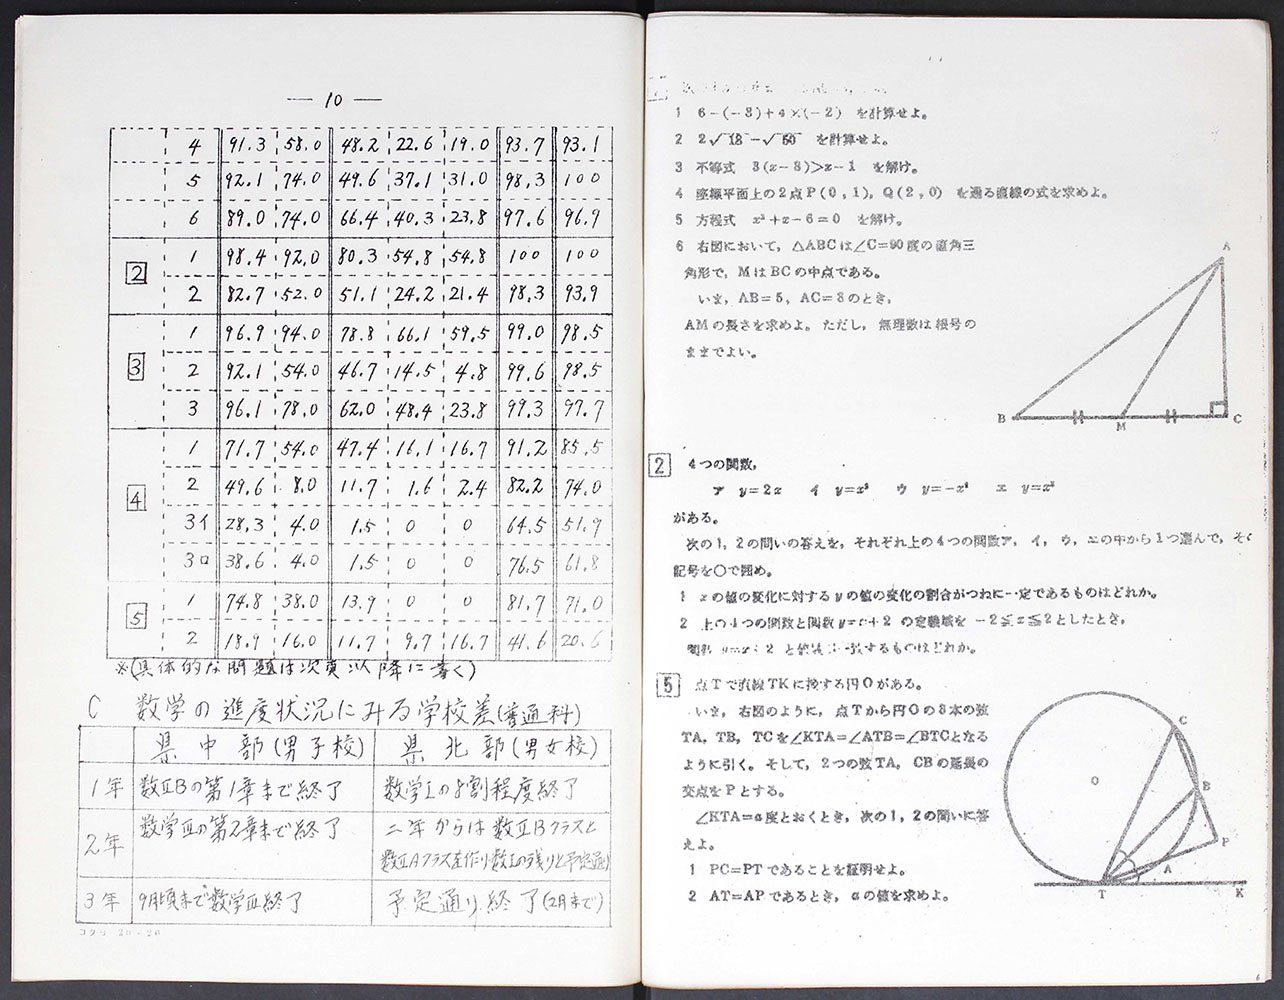 — 10 —
4 91.3 58.0 48.2 22.6 19.0 93.7 93.1
5 92.1 74.0 49.6 37.1 31.0 98.3 100
6 89.0 74.0 66.4 40.3 23.8 97.6 96.9
2 1 98.4 92.0 80.3 54.8 54.8 100 100
2 82.7 52.0 51.1 24.2 21.4 98.3 93.9
3 1 96.9 94.0 78.8 66.1 59.5 99.0 98.5
2 92.1 54.0 46.7 14.5 4.8 99.6 98.5
3 96.1 78.0 62.0 48.4 23.8 99.3 97.7
4 1 71.7 54.0 47.4 16.1 16.7 91.2 85.5
2 49.6 8.0 11.7 1.6 2.4 82.2 74.0
3イ 28.3 4.0 1.5 0 0 64.5 51.9
3ロ 38.6 4.0 1.5 0 0 76.5 61.8
5 1 74.8 38.0 13.9 0 0 81.7 71.0
2 18.9 16.0 11.7 9.7 16.7 41.6 20.6
※(具体的な問題は次頁以降に書く)
C 数学の進度状況にみる学校差(普通科)
県中部(男子校) 県北部(男女校)
1年 数ⅡBの第1章まで終了 数学Ⅰの8割程度終了
2年 数学Ⅲの第2章まで終了 二年からは数ⅡBクラスと
数ⅡAクラスを作り数Ⅰの残りと予定通り
3年 9月頃まで数学Ⅲ終了 予定通り終了(2月まで)
コクヨ 20-20
1 6-(-3)+4×(-2) を計算せよ。
2 2√18-√50 を計算せよ。
3 不等式 3(x-3)>x-1 を解け。
4 座標平面上の2点P(0,1),Q(2,0) を通る直線の式を求めよ。
5 方程式 x²+x-6=0 を解け。
6 右図において,△ABCは∠C=90度の直角三
角形で,MはBCの中点である。
いま,AB=5,AC=3のとき,
AMの長さを求めよ。ただし,無理数は根号の
ままでよい。
A
B M C
2 4つの関数,
ア y=2x イ y=x² ウ y=-x² エ y=x³
がある。
次の1,2の問いの答えを,それぞれ上の4つの関数ア,イ,ウ,エの中から1つ選んで,その
記号を○で囲め。
1 xの値の変化に対するyの値の変化の割合がつねに一定であるものはどれか。
2 上の4つの関数と関数y=x+2 の定義域を -2≦x≦2としたとき,
関数 y=x+2 と値域が一致するものはどれか。
5 点Tで直線TKに接する円Oがある。
いま,右図のように,点Tから円Oの3本の弦
TA,TB,TCを∠KTA=∠ATB=∠BTCとなる
ように引く。そして,2つの弦TA,CBの延長の
交点をPとする。
∠KTA=α度とおくとき,次の1,2の問いに答
えよ。
1 PC=PTであることを証明せよ。
2 AT=APであるとき,αの値を求めよ。
C
O
B
P
A
T K